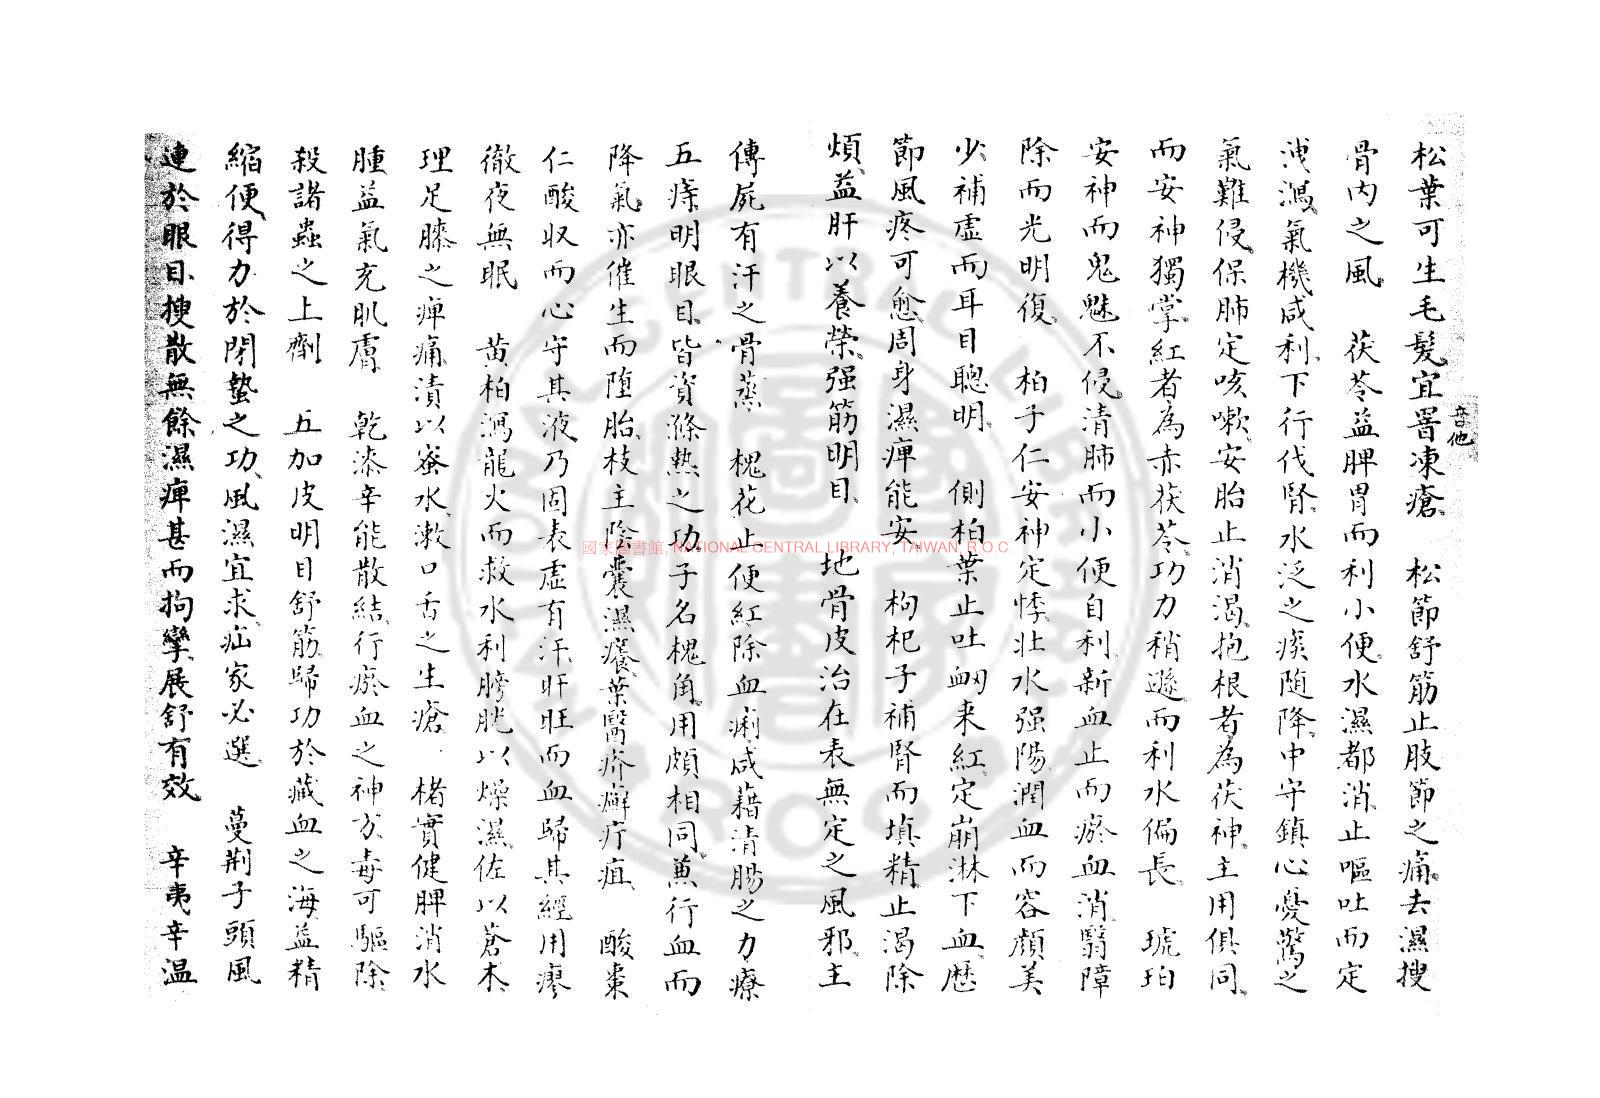 音他
松葉可生毛髮宜罯凍瘡　松節舒筋止肢節之痛去濕搜
骨內之風　茯苓益脾胃而利小便水濕都消止嘔吐而定
洩瀉氣機咸利下行伐腎水泛之痰随降中守鎮心憂驚之
氣難侵保肺定咳嗽安胎止消渴抱根者為茯神主用俱同
而安神獨掌紅者為赤茯苓功力稍遜而利水偏長　琥珀
安神而鬼魅不侵清肺而小便自利新血止而瘀血消翳障
除而光明復　柏子仁安神定悸壯水强陽潤血而容顏美
少補虛而耳目聰明　側柏葉止吐衂来紅定崩淋下血歷
節風疼可愈周身濕痺能安　枸杞子補腎而填精止渴除
煩益肝以養榮强筋明目　地骨皮治在表無定之風邪主
傳屍有汗之骨蒸　槐花止便紅除血痢咸藉清腸之力療
五痔明眼目皆資滌熱之功子名槐角用頗相同兼行血而
降氣亦催生而墮胎枝主陰囊濕癢葉醫疥癬疔疽　酸棗
仁酸収而心守其液乃固表虛有汗肝旺而血歸其經用瘳
徹夜無眠　黄柏瀉龍火而救水利膀胱以燥濕佐以蒼朮
理足膝之痺痛漬以蜜水漱口舌之生瘡　楮實健脾消水
腫益氣充肌膚　乾漆辛能散結行瘀血之神方毒可驅除
殺諸蟲之上劑　五加皮明目舒筋歸功於藏血之海益精
縮便得力於閉蟄之功風濕宜求疝家必選　蔓荆子頭風
連於眼目搜散無餘濕痺甚而拘攣展舒有效　辛夷辛温
國家圖書館, NATIONAL CENTRAL LIBRARY, TAIWAN, R.O.C.